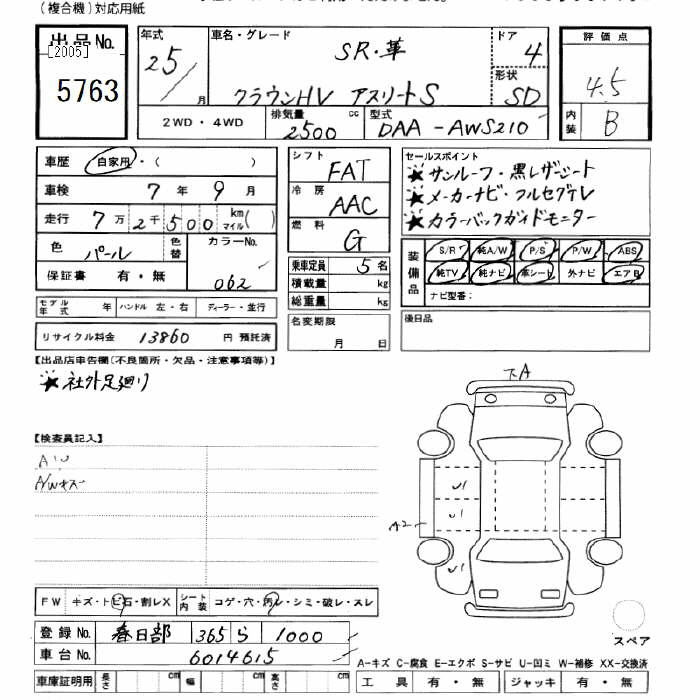 (複合機)対応用紙
出品No.
[2005]
5763
年式
25/
月
車名・グレード
SR・革
クラウンHV アスリートS
ドア
4
形状
SD
2WD・4WD
排気量
2500
cc
型式
DAA-AWS210
評価点
4.5
内装
B
車歴 自家用・( )
車検 7年 9月
走行 7万2千500 km マイル( )
色 パール 色替
カラーNo.
062
保証書 有・無
モデル年式 年 ハンドル 左・右 ディーラー・並行
リサイクル料金 13860 円 預託済
シフト
FAT
冷房
AAC
燃料
G
乗車定員 5名
積載量 kg
総重量 kg
名変期限
月 日
セールスポイント
★サンルーフ・黒レザーシート
★メーカーナビ・フルセグTV
★カラーバックガイドモニター
装備品
S/R 純A/W P/S P/W ABS
純TV 純ナビ 革シート 外ナビ エアB
ナビ型番:
後日品
【出品店申告欄(不良箇所・欠品・注意事項等)】
★社外足廻り
【検査員記入】
A/Wキズ
下A
U1
U1
A2
U1
スペア
FW キズ・トビ石・割レX シート内装 コゲ・穴・汚レ・シミ・破レ・スレ
登録No. 春日部 365 ら 1000
車台No. 6014615
車庫証明用 長さ cm 幅 cm 高さ cm
A-キズ C-腐食 E-エクボ S-サビ U-凹ミ W-補修 XX-交換済
工具 有・無 ジャッキ 有・無